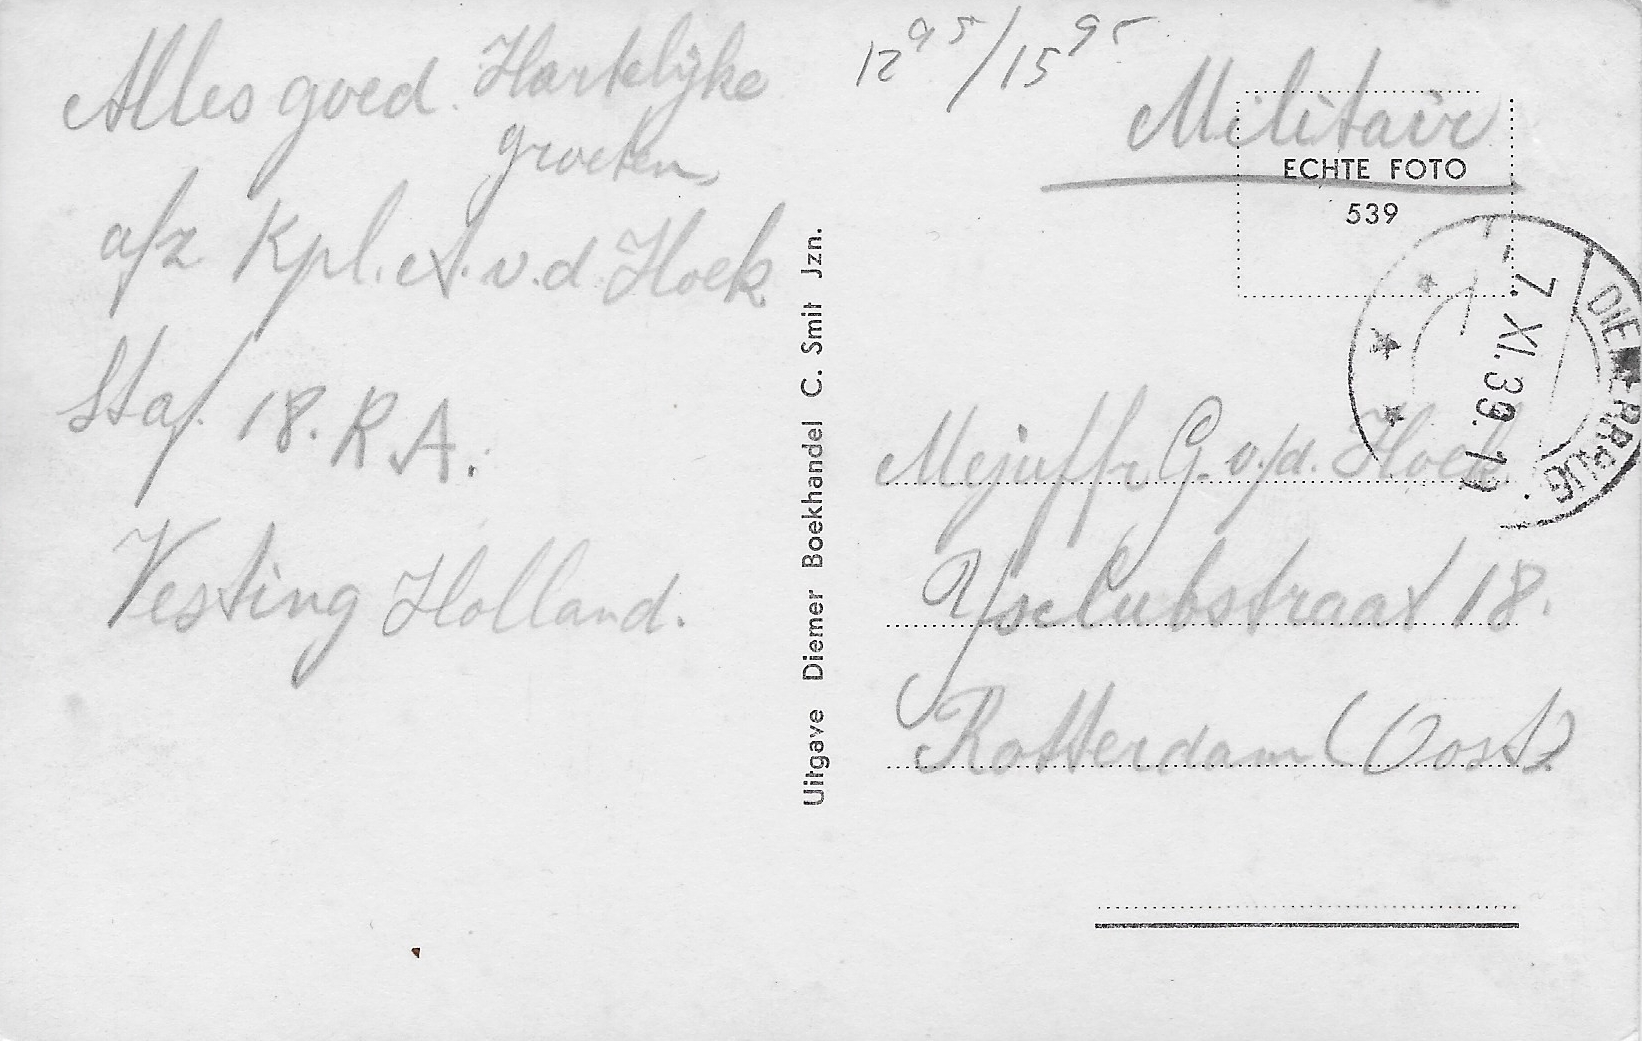 Alles goed. Hartelijke
groeten,
a/z Kpl. A. v.d. Hoek
Staf 18. R.A.
Vesting Holland.
Uitgave Diemer Boekhandel C. Smit Jzn.
12 95/15 95
Militair
ECHTE FOTO
539
7. XI. 39. 17
DIEMERBRUG
Mejuffr G. v/d. Hoek
Ysclubstraat 18.
Rotterdam (Oost)